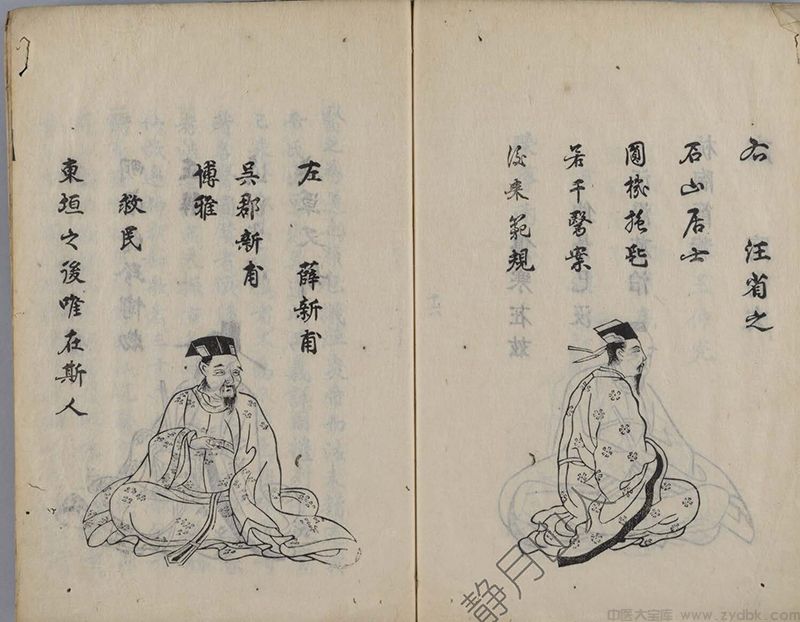 右 汪省之
石山居士
圓機
若干醫案
後来範規
左 薛新甫
吳郡新甫
博雅
救民
東垣之後唯在斯人
静月
中医大宝库 www.zydbk.com